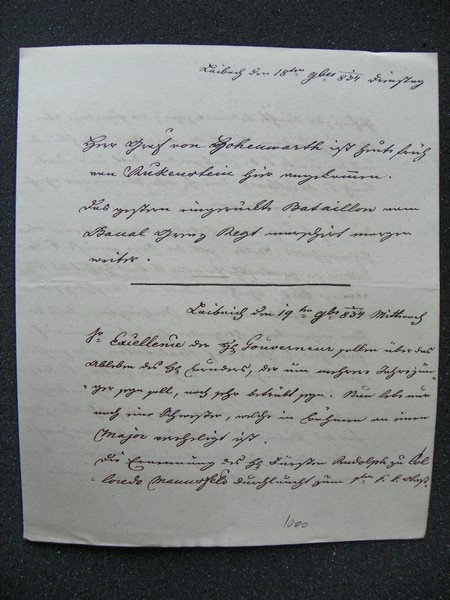 Laibach den 18ten 9ber 1834 Dienstag
Herr Graf von Hohenwarth ist heute früh
von Rukenstein hier angekommen.
Das gestern eingerückte Bataillon vom
Banal Grenz Regt marschirt morgen
weiter.
Laibach den 19ten 9ber 834 Mittwoch
Se Excellenz der H. Gouverneur sollen über das
Ableben des H. Bruders, der um mehrere Jahre jün-
ger seyn soll, noch sehr betrübt seyn. Nun lebe nur
noch eine Schwester, welche in Böhmen an einen
Major vereheligt ist.
Die Ernennung des H. Fürsten Rudolph zu Col-
loredo Mannsfeld Durchlaucht zum k. k.
1000